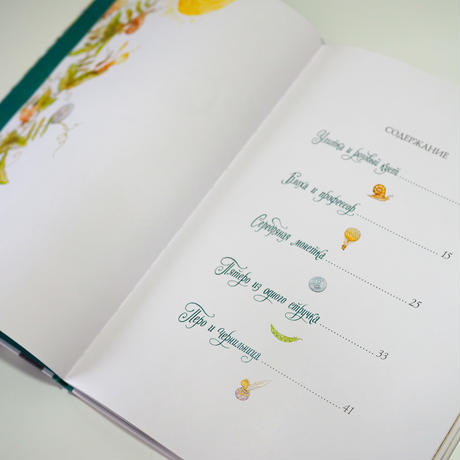 СОДЕРЖАНИЕ
Улитка и розовый куст
Блоха и профессор 15
Серебряная монетка 25
Пятеро из одного стручка 33
Перо и чернильница 41